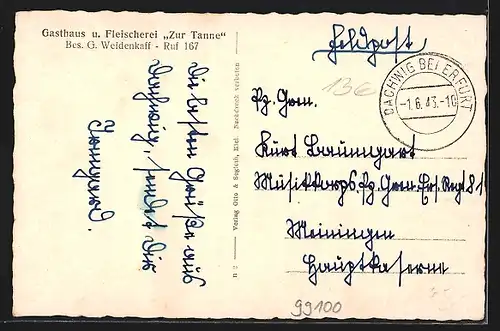 Gasthaus u. Fleischerei „Zur Tanne"
Bes. G. Weidenkaff - Ruf 167
Die besten Grüße aus
Dachwig, sendet Dir
Irmgard.
Verlag Otto & Sogfeld, Kiel Nachdruck verboten
Feldpost
13€
DACHWIG BEI ERFURT
-1.6.43.-10
Pz. Gren.
Kurt Baumgart
Musikkorps Pz. Gren. Ers. Regt 81
Meiningen
Hauptkaserne
99100